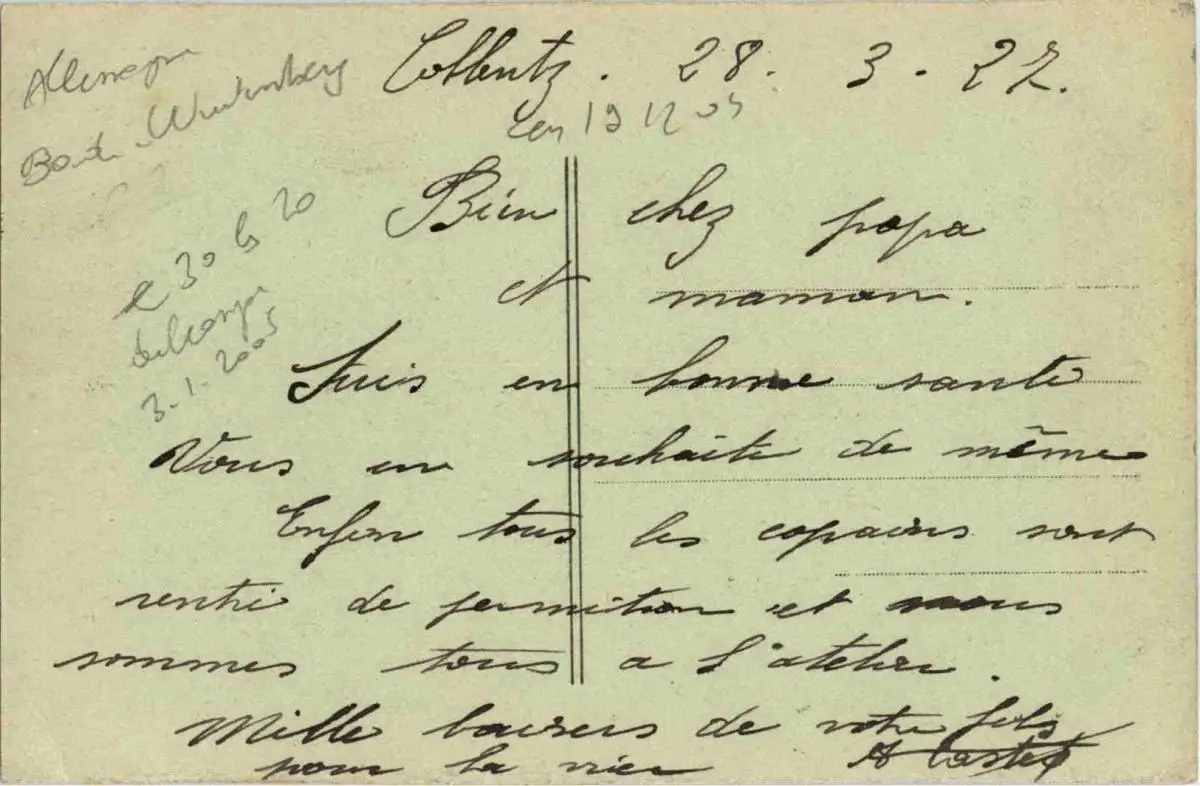 Allemagne
Coblentz. 28. 3. 27.
19 12 03
Bien chez papa
et maman.
le 30 les 20
3.1.2005
Suis en bonne sante
Vous en souhaite de même
Enfin tous les copains sont
rentré de permition et nous
sommes tous a l'atelier.
Mille baisers de votre fils
pour la vie
A Castet